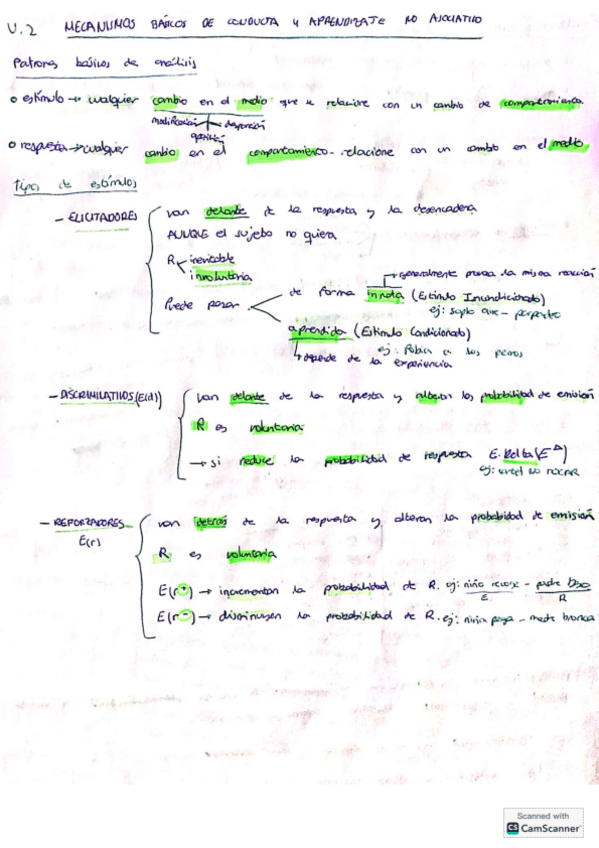 U.2 MECANISMOS BÁSICOS DE CONDUCTA Y APRENDIZAJE NO ASOCIATIVO
Patrones básicos de análisis
o estímulo → cualquier cambio en el medio que se relacione con un cambio de comportamiento.
modificación desaparición
aparición
o respuesta → cualquier cambio en el comportamiento relacione con un cambio en el medio
Tipos de estímulos
- ELICITADORES
van delante de la respuesta y la desencadena
AUNQUE el sujeto no quiera
R inevitable
involuntaria
→ generalmente provoca la misma reacción
Puede pasar
de forma innata (Estímulo Incondicionado)
ej: soplo aire - parpadeo
aprendida (Estímulo Condicionado)
ej: Fobia a los perros
→ depende de la experiencia
- DISCRIMINATIVOS (E(d))
van delante de la respuesta y alteran las probabilidad de emisión
R es voluntaria
→ si reduce la probabilidad de respuesta E. Delta (E^Δ)
ej: cartel NO TOCAR
- REFORZADORES
E(r)
van detrás de la respuesta y alteran la probabilidad de emisión
R es voluntaria
E(r+) → incrementan la probabilidad de R. ej: niño recoge - padre beso
E R
E(r-) → disminuyen la probabilidad de R. ej: niño pega - madre bronca
Scanned with
CS CamScanner